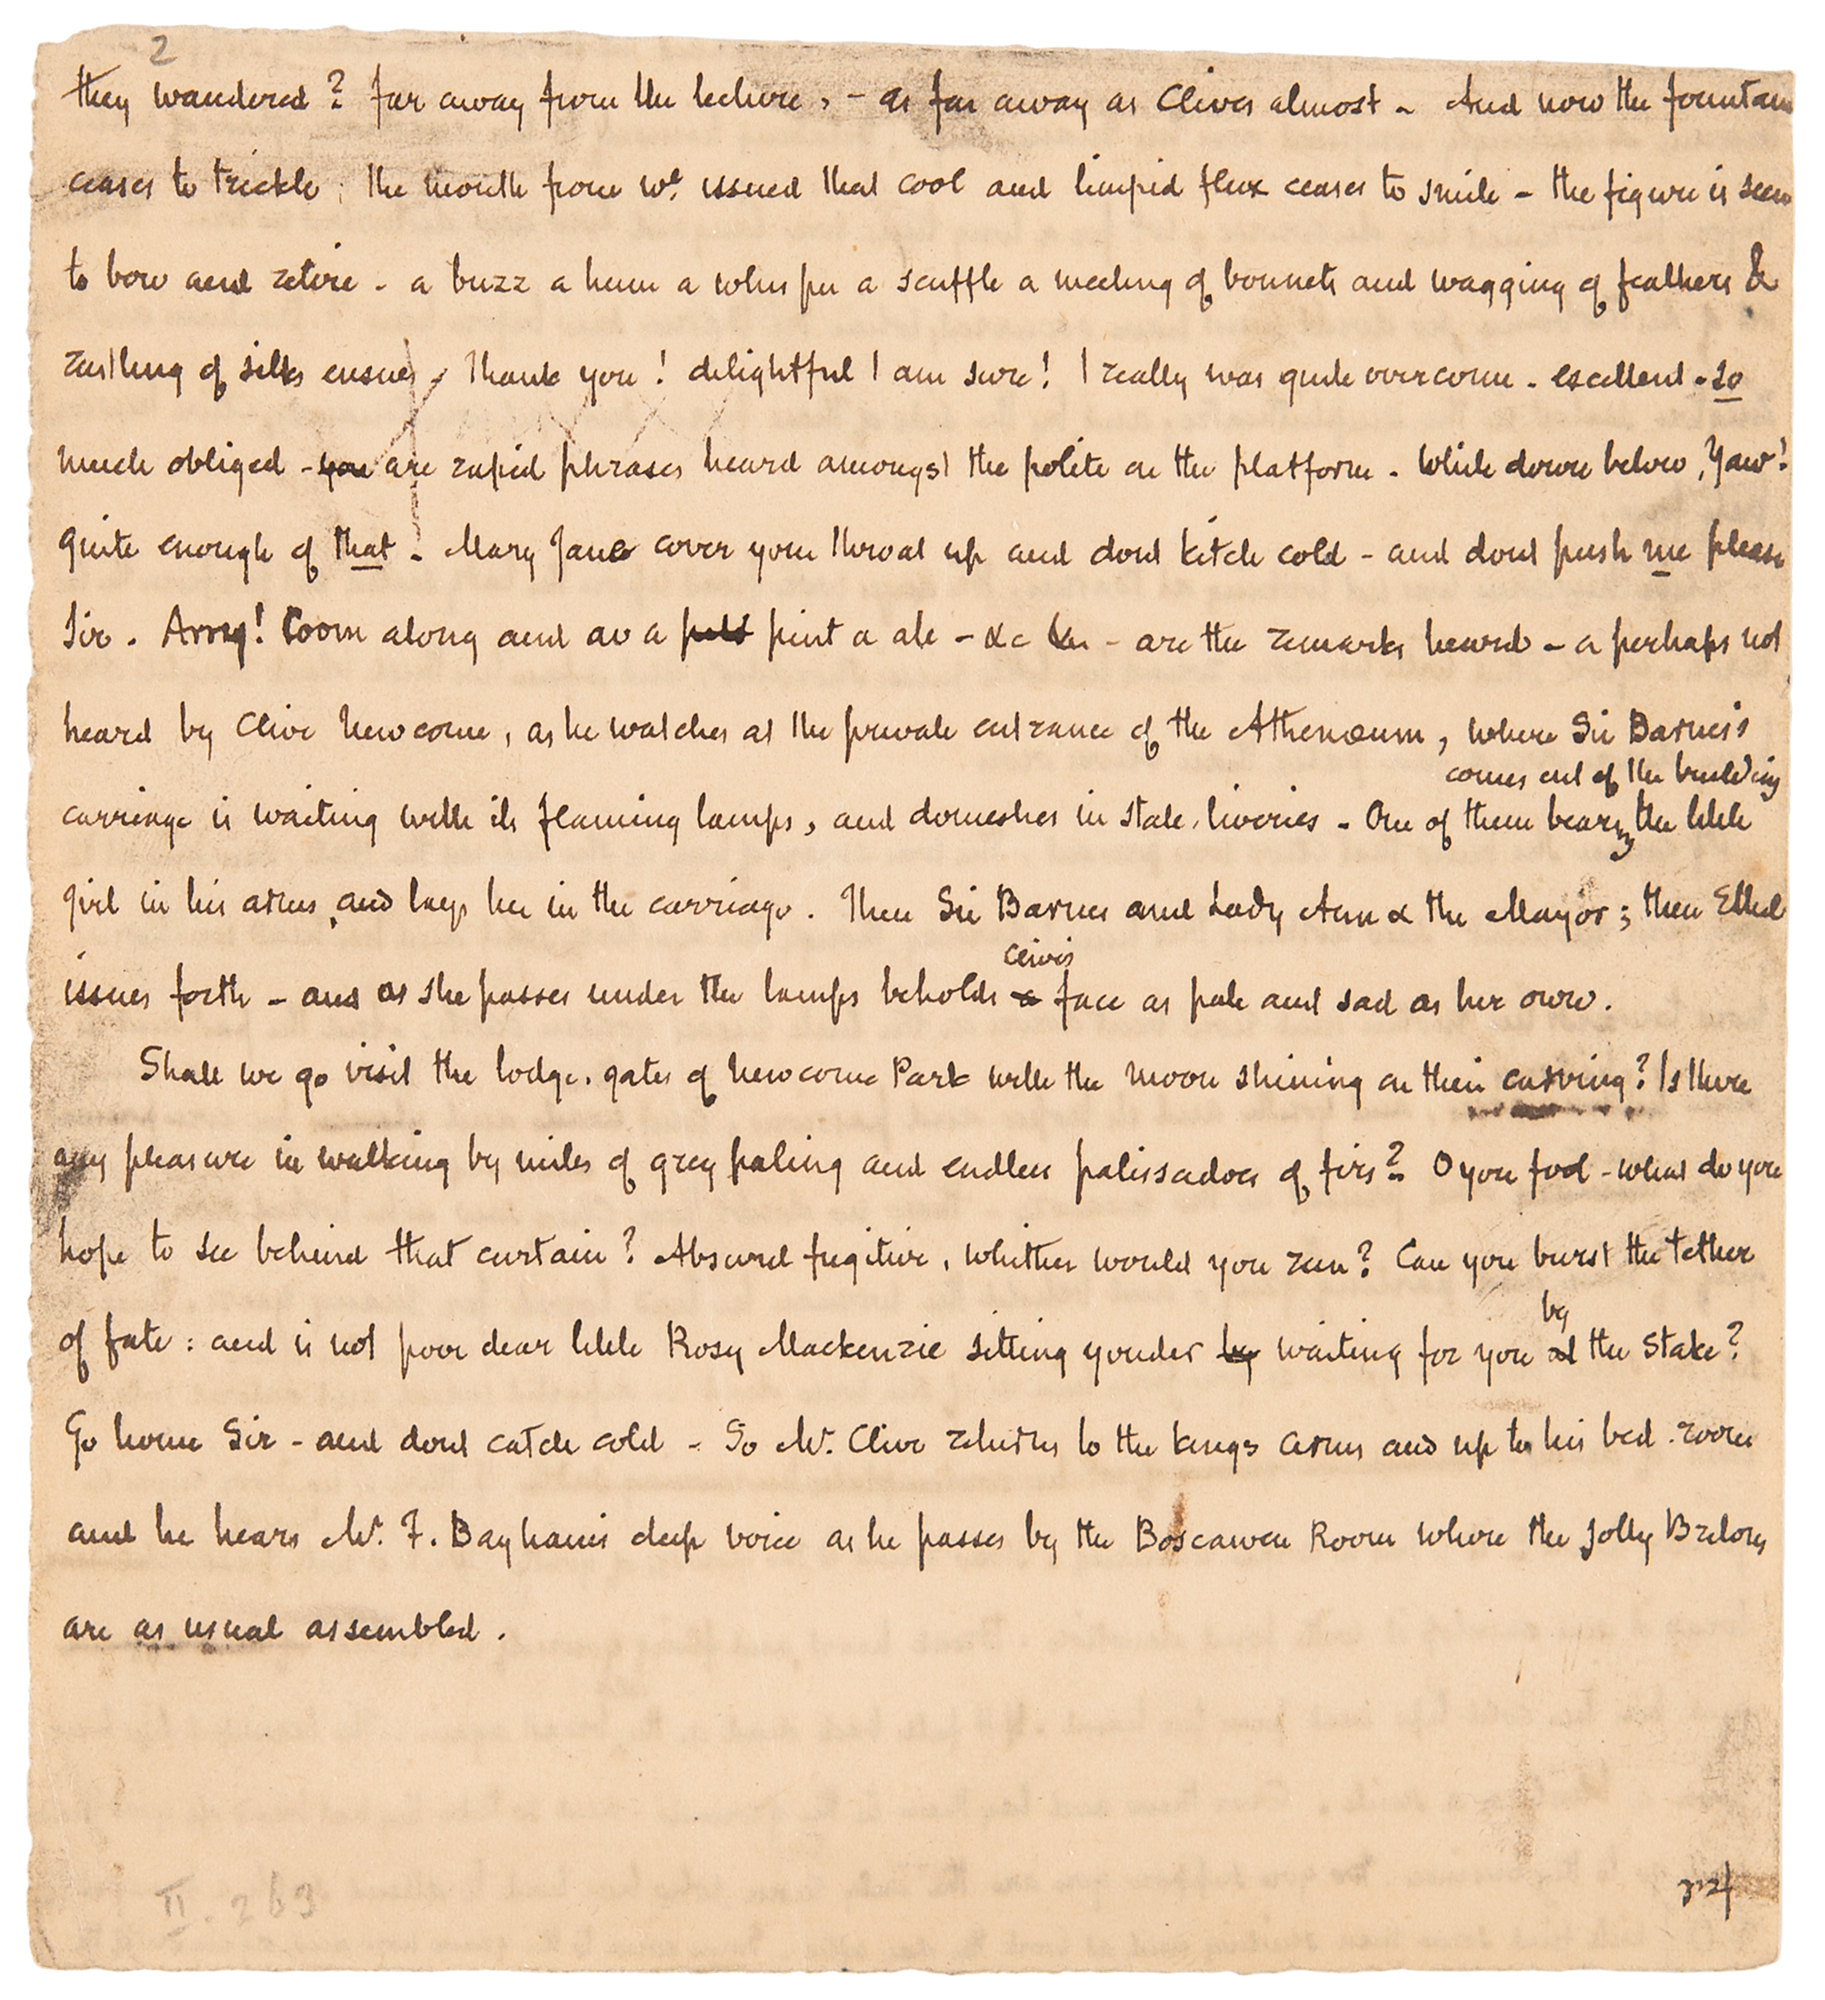 2
they wandered? far away from the lecture, - as far away as Clives almost - And now the fountain
ceases to trickle; the mouth from wh. issued that cool and limpid flux ceases to smile - the figure is seen
to bow and retire - a buzz a hum a whisper a scuffle a meeting of bonnets and wagging of feathers &
rustling of silks ensues. Thank you! delightful I am sure! I really was quite overcome - excellent - so
much obliged - you are rapid phrases heard amongst the polite on the platform - While down below, Yaw!
quite enough of that - Mary Jane cover your throat up and dont kitch cold - and dont push me please
Sir. Arry! Coom along and av a pint a ale - &c - are the remarks heard - or perhaps not
heard by Clive Newcome, as he watches at the private entrance of the Athenæum, where Sir Barnes's
comes out of the building
carriage is waiting with its flaming lamps, and domestics in state liveries - One of them bearing the little
girl in his arms, and lays her in the carriage. Then Sir Barnes and Lady Ann & the Mayor; then Ethel
Clives
issues forth - and as she passes under the lamps beholds a face as pale and sad as her own.
Shall we go visit the lodge-gates of Newcome Park with the moon shining on their carving? Is there
any pleasure in walking by miles of grey paling and endless palissadoes of firs? O you fool - what do you
hope to see behind that curtain? Absurd fugitive, whither would you run? Can you burst the tether
by
of fate: and is not poor dear little Rosy Mackenzie sitting yonder by waiting for you at the stake?
Go home Sir - and dont catch cold - So Mr. Clive returns to the Kings Arms and up to his bed-room
and he hears Mr. F. Bayham's deep voice as he passes by the Boscawen Room where the Jolly Britons
are as usual assembled.
II. 263